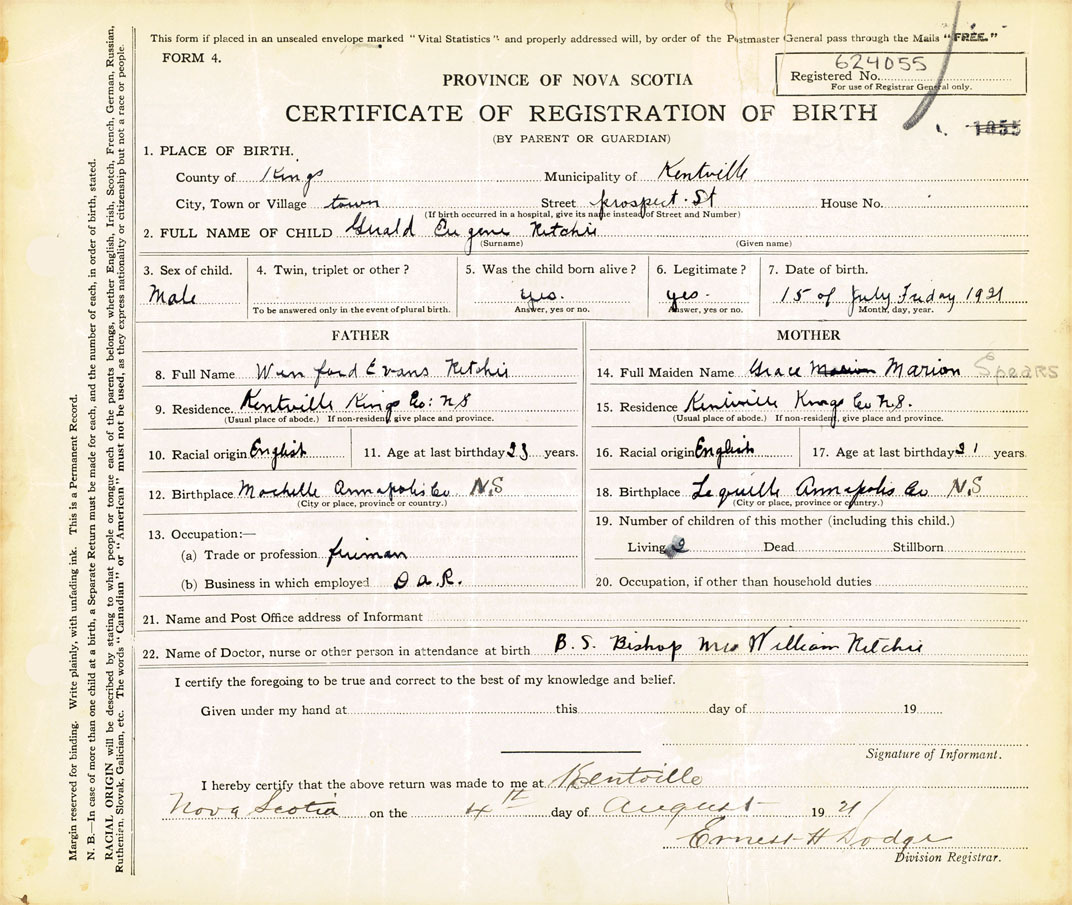 This form if placed in an unsealed envelope marked "Vital Statistics" and properly addressed will, by order of the Postmaster General pass through the Mails "FREE."
FORM 4.
624055
Registered No.
For use of Registrar General only.
PROVINCE OF NOVA SCOTIA
CERTIFICATE OF REGISTRATION OF BIRTH
(BY PARENT OR GUARDIAN)
1. PLACE OF BIRTH.
County of Kings Municipality of Kentville
City, Town or Village town Street prospect St House No.
(If birth occurred in a hospital, give its name instead of Street and Number)
2. FULL NAME OF CHILD Gerald Eugene Ritchie
(Surname) (Given name)
3. Sex of child. 4. Twin, triplet or other? 5. Was the child born alive? 6. Legitimate? 7. Date of birth.
Male yes. yes. 15 of July Friday 1921
To be answered only in the event of plural birth. Answer, yes or no. Answer, yes or no. Month, day, year.
FATHER MOTHER
8. Full Name Winford Evans Ritchie 14. Full Maiden Name Grace Marion Spears
9. Residence Kentville Kings Co: NS 15. Residence Kentville Kings Co N.S.
(Usual place of abode.) If non-resident, give place and province. (Usual place of abode.) If non-resident, give place and province.
10. Racial origin English 11. Age at last birthday 23 years. 16. Racial origin English 17. Age at last birthday 21 years.
12. Birthplace Mochelle Annapolis Co N.S 18. Birthplace Lequille Annapolis Co N.S
(City or place, province or country.) (City or place, province or country.)
13. Occupation:— 19. Number of children of this mother (including this child.)
(a) Trade or profession fireman Living 2 Dead Stillborn
(b) Business in which employed D.A.R. 20. Occupation, if other than household duties
21. Name and Post Office address of Informant
22. Name of Doctor, nurse or other person in attendance at birth B. S. Bishop Mrs William Ritchie
I certify the foregoing to be true and correct to the best of my knowledge and belief.
Given under my hand at this day of 19
Signature of Informant.
I hereby certify that the above return was made to me at Kentville
Nova Scotia on the 4th day of August 1921
Ernest H Dodge
Division Registrar.
Margin reserved for binding. Write plainly, with unfading ink. This is a Permanent Record.
N. B.—In case of more than one child at a birth, a Separate Return must be made for each, and the number of each, in order of birth, stated.
RACIAL ORIGIN will be described by stating to what people or tongue each of the parents belongs, whether English, Irish, Scotch, French, German, Russian,
Ruthenien, Slovak, Galician, etc. The words "Canadian" or "American" must not be used, as they express nationality or citizenship but not a race or people.